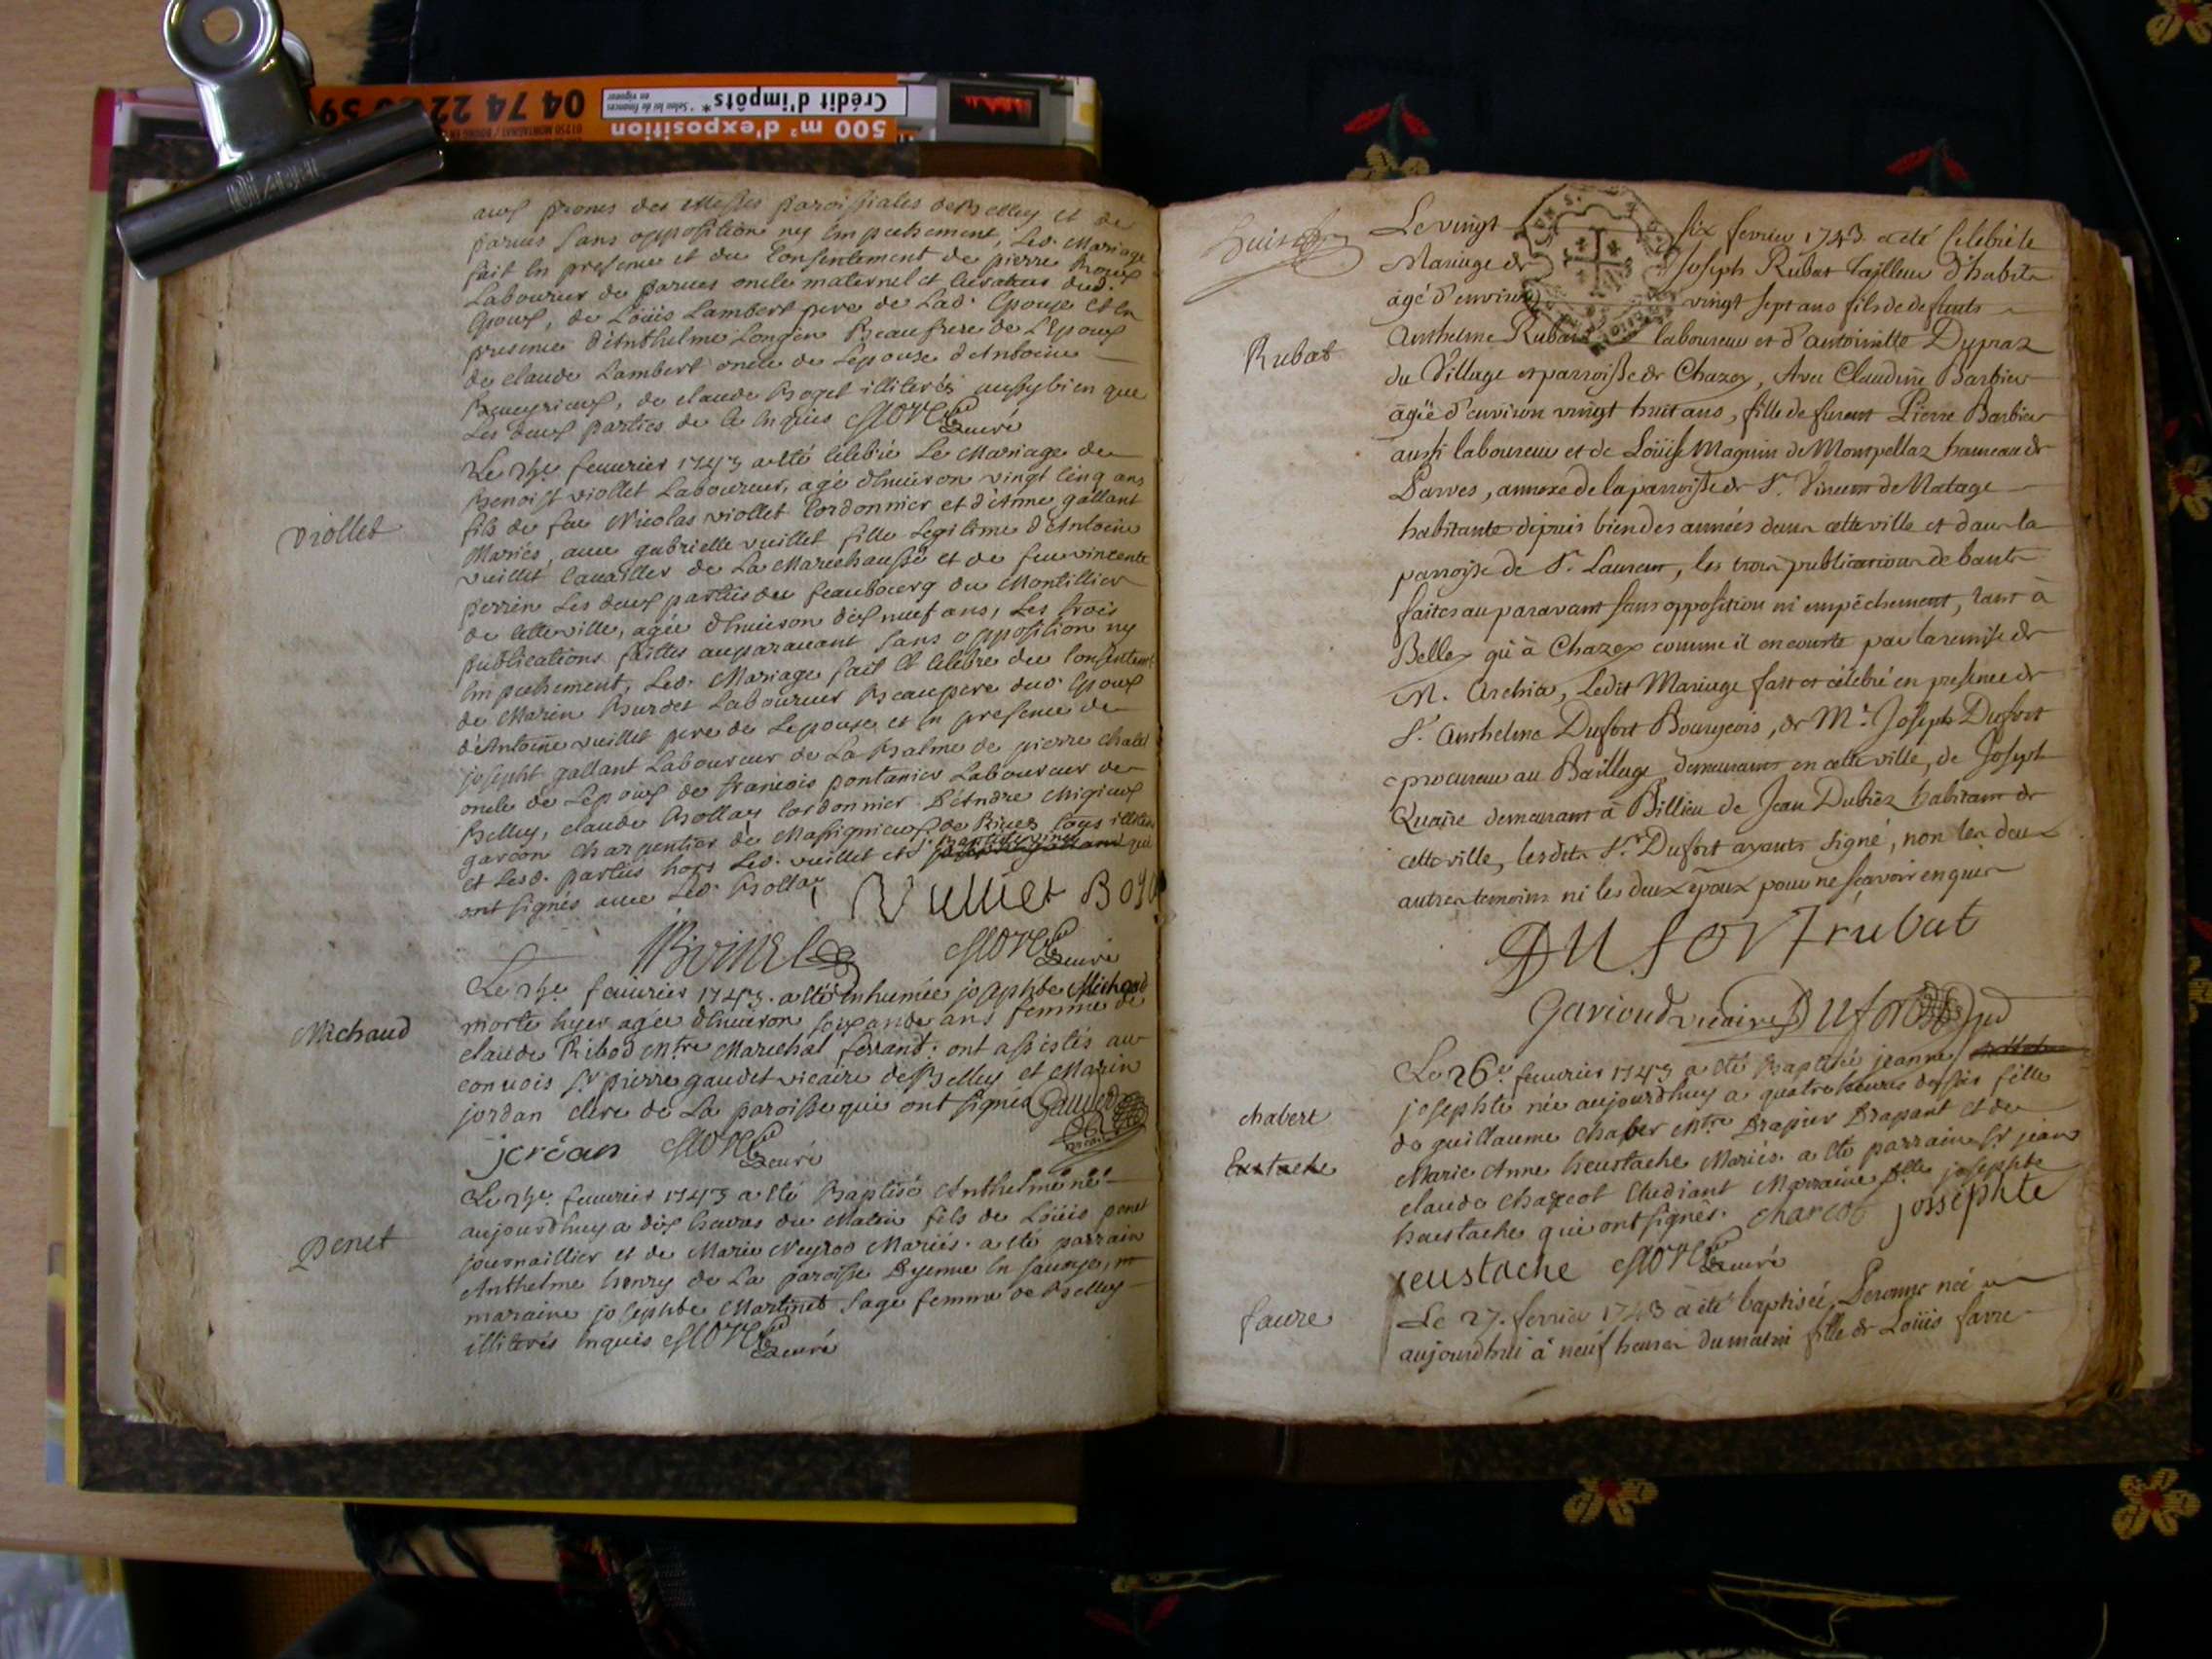 04 74 22
Crédit d'impôts*
* Selon loi de finances
en vigueur
500 m² d'exposition
aux prones des Messes paroissiales de Belley et de
parves sans opposition ny empechement, led. Mariage
fait en presence et du Consentement de pierre Roux
Laboureur de parves oncle maternel et curateur dud.
Epoux, de Loüis Lambert pere de Lad. Epouse et en
presence d'Anthelme Longin Beaufrere de L'Epoux
de claude Lambert oncle de Lepouse d'Antoine
de claude Roget illiterés aussy bien que
Les deux parties de ce Enquis
curé
viollet
Le 25e. feuurier 1743 a été celebré Le Mariage de
Benoist viollet Laboureur, agé d'Enuiron vingt cinq ans
fils de feu Nicolas viollet Cordonnier et d'Anne gallant
Mariés, auec gabrielle vuillet fille Legitime d'Antoine
vuillet Caualier de La Marechaussé et de feu vincente
perrin Les deux parties du feaubourg du Montillier
de cette ville, agée d'Enuiron dix neuf ans, Les trois
publications faittes auparauant sans opposition ny
Empechement, Led. Mariage fait et celebré du Consentemt.
de Marin Burdet Laboureur Beaupere dud. Epoux
d'Antoine vuillet pere de Lepouse et en presence de
josepht gallant Laboureur de La Balme de pierre
oncle de Lepoux de francois pontanier Laboureur de
Belley, claude Bollay Cordonnier D'Andre Migieux
garcon Charpentier de Massignieux de Rives tous illiterés
et Lesd. parties hors Led. vuillet et qui
ont signés auec Led. Bollay
Vulliet
curé
Michaud
Le 25e. feuurier 1743. a été Enhumée josephte Michaud
morte hyer agée d'Enuiron soixante ans femme de
claude Ribod Mtre Marechal ferrant: ont assistés au
conuois Sr. pierre gaudet vicaire de Belley et Marin
jordan clerc de La paroisse qui ont signés Gaudet
vicaire
jordan
curé
penet
Le 25e. feuurier 1743 a été Baptisé Anthelme né
aujourdhuy a dix heures du Matin fils de Loüis penet
journaillier et de Marie Neyrod Mariés. a été parrain
Anthelme henry de La paroisse Dyenne en sauoye, et
maraine josephte Martinet sage femme de Belley
illiterés Enquis
curé
Rubat
Le vingt six fevrier 1743. a été celebré le
Mariage de Joseph Rubat tailleur d'habits
âgé d'environ vingt sept ans fils de defunts
Anthelme Rubat laboureur et d'antoinette Dupraz
du Village et parroisse de Chazey, Avec Claudine Barbier
âgée d'environ vingt huit ans, fille de furent Pierre Barbier
aussi laboureur et de Loüise Magnin de Montpellaz hameau de
Parves, annexe de la parroisse de St. Vincent de Natage
habitante depuis bien des années dans cette ville et dans la
parroisse de St. Laurent, les trois publications de bants
faites auparavant sans opposition ni empêchement, tant à
Belley qu'à Chazey comme il en conste par la remise de
M. Archier, Ledit Mariage fait et célébré en presence de
Sr. Anthelme Dufort Bourgeois, de Mr. Joseph Dufort
procureur au Bailliage demeurants en cette ville, de Joseph
Quaire demeurant à Billieu de Jean Dubiez habitant de
cette ville, lesdits Srs Dufort ayants signé, non les deux
autres temoins ni les deux époux pour ne sçavoir enquis
DUFORT rubat
Garioud vicaire Dufort
chabert
Eustache
Le 26e. feuurier 1743 a été Baptisée jeanne
josephte née aujourdhuy a quatre heures du soir fille
de guillaume chaber Mtre Drapier Drapant et de
Marie Anne heustache Mariés. a été parrain Sr. jean
claude charcot Etudiant Marraine Dlle josephte
heustache qui ont signés. charcot jossephte
eustache
curé
faure
Le 27. fevrier 1743 a été baptisée, Peronne née
aujourdhui à neuf heures du matin fille de Loüis favre